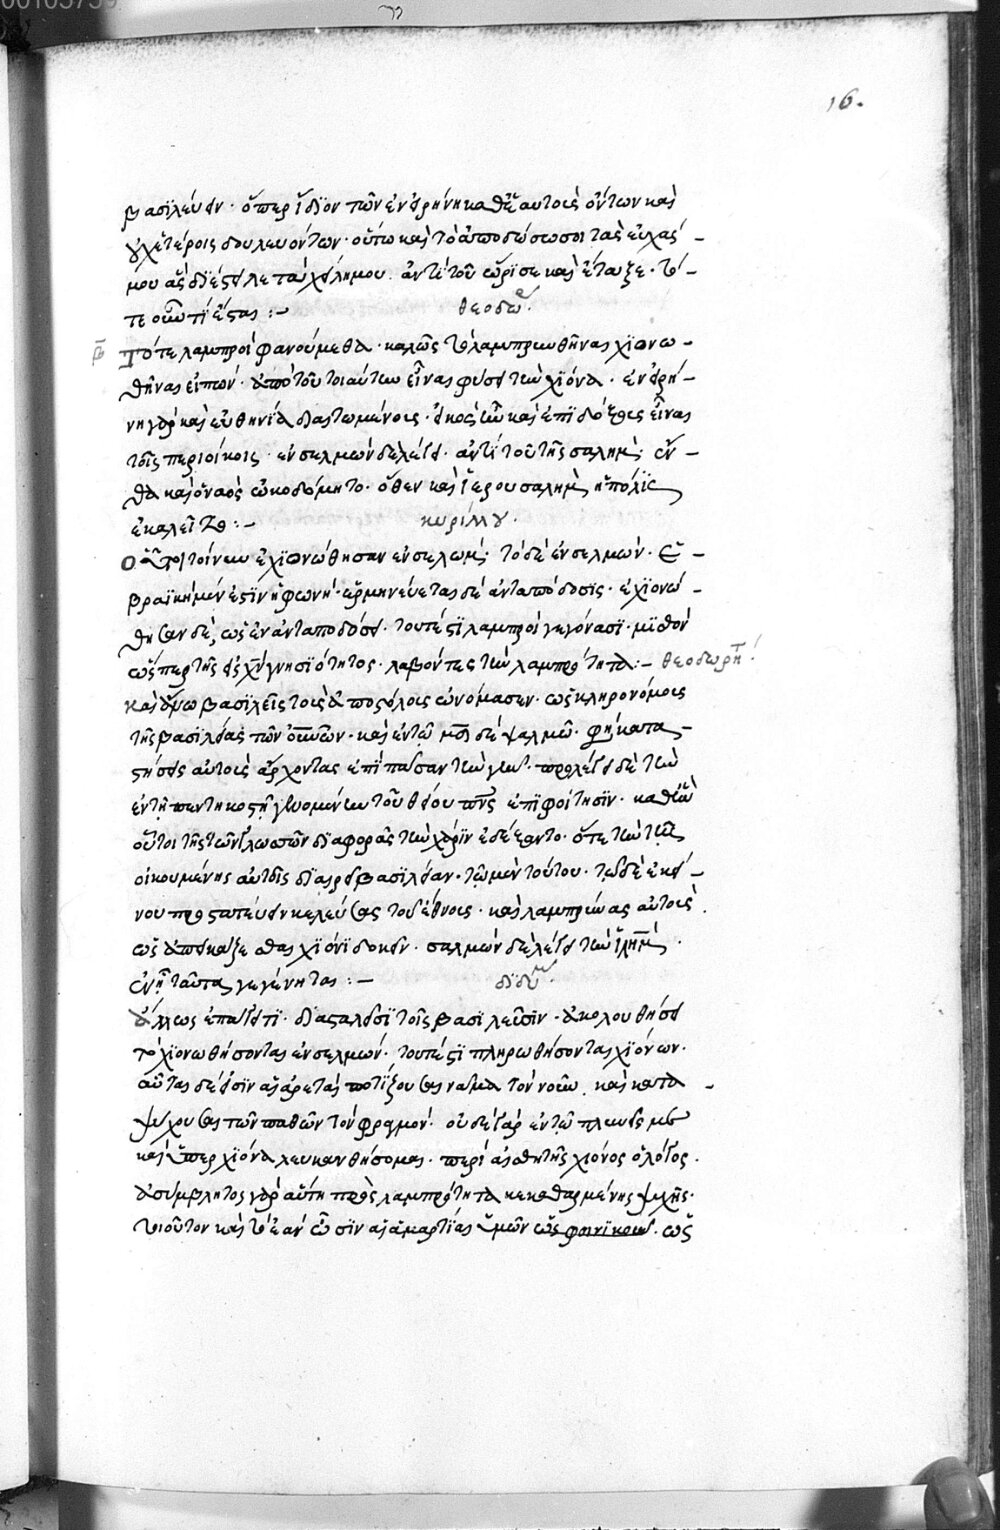 16.
βασιλεύειν· ὅπερ ἴδιον τῶν ἐν εἰρήνῃ καθ' ἑαυτοὺς ὄντων καὶ
οὐχ ἑτέροις δουλευόντων· οὕτω καὶ τὸ ἀποδώσωσοι τὰς εὐχάς
μου ἃς διέστειλε τὰ χείλη μου. ἀντὶ τοῦ ὥρισε καὶ ἔταξε· τό
θεοδώ
Τότε λαμπροὶ φανούμεθα· καλῶς τὸ λαμπρυνθῆναι χιονω
θῆναι εἰπών· ἀπὸ τοῦ τοιαύτην εἶναι φύσει τὴν χιόνα· ἐν εἰρή
νῃ γὰρ καὶ εὐθηνίᾳ διαιτωμένοις· εἰκὸς ἦν καὶ ἐπιδόξοις εἶναι
τοῖς περιοίκοις· ἐν σελμὼν δὲ λέγει· ἀντὶ τοῦ τῆς σαλὴμ· ἔν
θα καὶ ὁ ναὸς ὠκοδόμητο· ὅθεν καὶ ἱερουσαλὴμ ἡ πόλις
ἐκαλεῖτο:– κυρίλλου·
τοίνυν ἐχιονώθησαν ἐν σελμών· τὸ δὲ ἐν σελμών· ἑ
βραϊκὴ μέν ἐστιν ἡ φωνή· ἑρμηνεύεται δὲ ἀνταπόδοσις· ἐχιονώ
θησαν δὲ, ὡς ἐν ἀνταποδόσει· τουτέστι λαμπροὶ γεγόνασι· μισθὸν
ὥσπερ τῆς γνησιότητος· λαβόντες τὴν λαμπρότητα:– θεοδωρήτ
καὶ ἄνω βασιλεῖς τοὺς ἀποστόλους ὠνόμασεν· ὡς κληρονόμους
τῆς βασιλείας τῶν οὐνῶν· καὶ ἐν τῷ μδ δὲ ψαλμῷ· φη κατα
στήσεις αὐτοὺς ἄρχοντας ἐπὶ πᾶσαν τὴν γῆν· προλέγει δὲ τὴν
ἐν τῇ πεντηκοστῇ γενομένην τοῦ θείου πνς ἐπιφοίτησιν· καθ' ἣν
οὗτοι τῆς τῶν γλωσσῶν διαφορᾶς τὴν χάριν ἐδέξαντο· ὅτε τὴν τῆς
οἰκουμένης αὐτοῖς διαιρεῖ βασιλείαν· τῷ μὲν τούτου· τῷ δὲ ἐκεί
νου προστατεύειν κελεύσας τοῦ ἔθνους· καὶ λαμπρύνας αὐτοὺς
ὡς ἀπεικάζεσθαι χιόνι δοκεῖν· σαλμὼν δὲ λέγει τὴν ἱλημ·
ἐν ᾗ ταῦτα γεγένηται:– διδύμ
ἄλλως ἐπάγει τι· διαστολῇ τοῖς βασιλεῦσιν· ἀκολουθήσει
τὸ χιονωθήσονται ἐν σελμών· τουτέστι πληρωθήσονται χιόνων·
αὗται δέ εἰσιν αἱ ἀρεταὶ ποτίζουσαι νάματα τὸν νοῦν καὶ κατα
ψύχουσαι τῶν παθῶν τὸν φραγμόν· οὐδὲ γὰρ ἐν τῷ πλυνεῖς με
καὶ ὑπὲρ χιόνα λευκανθήσομαι· περὶ αἰσθητῆς χιόνος ὁ λόγος·
ἀσύμβλητος γὰρ αὕτη πρὸς λαμπρότητα κεκαθαρμένης ψυχῆς·
τοιοῦτον καὶ τὸ ἐὰν ὦσιν αἱ ἁμαρτίαι ὑμῶν ὡς φοινικοῦν· ὡς